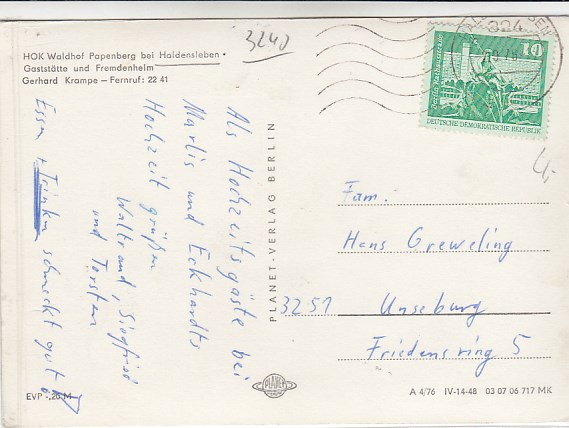 HOK Waldhof Papenberg bei Haldensleben •
Gaststätte und Fremdenheim
Gerhard Krampe – Fernruf: 22 41
3240
324
10
Berlin, Neptunbrunnen
DEUTSCHE DEMOKRATISCHE REPUBLIK
4,-
Als Hochzeitsgäste bei
Marlis und Eckhardts
Hochzeit grüßen
Waltraud, Siegfried
und Torsten
Essen + Trinken schmeckt gut!
PLANET-VERLAG BERLIN
Fam.
Hans Greweling
3251 Unseburg
Friedensring 5
PLANET
EVP -,20 M
A 4/76 IV-14-48 03 07 06 717 MK